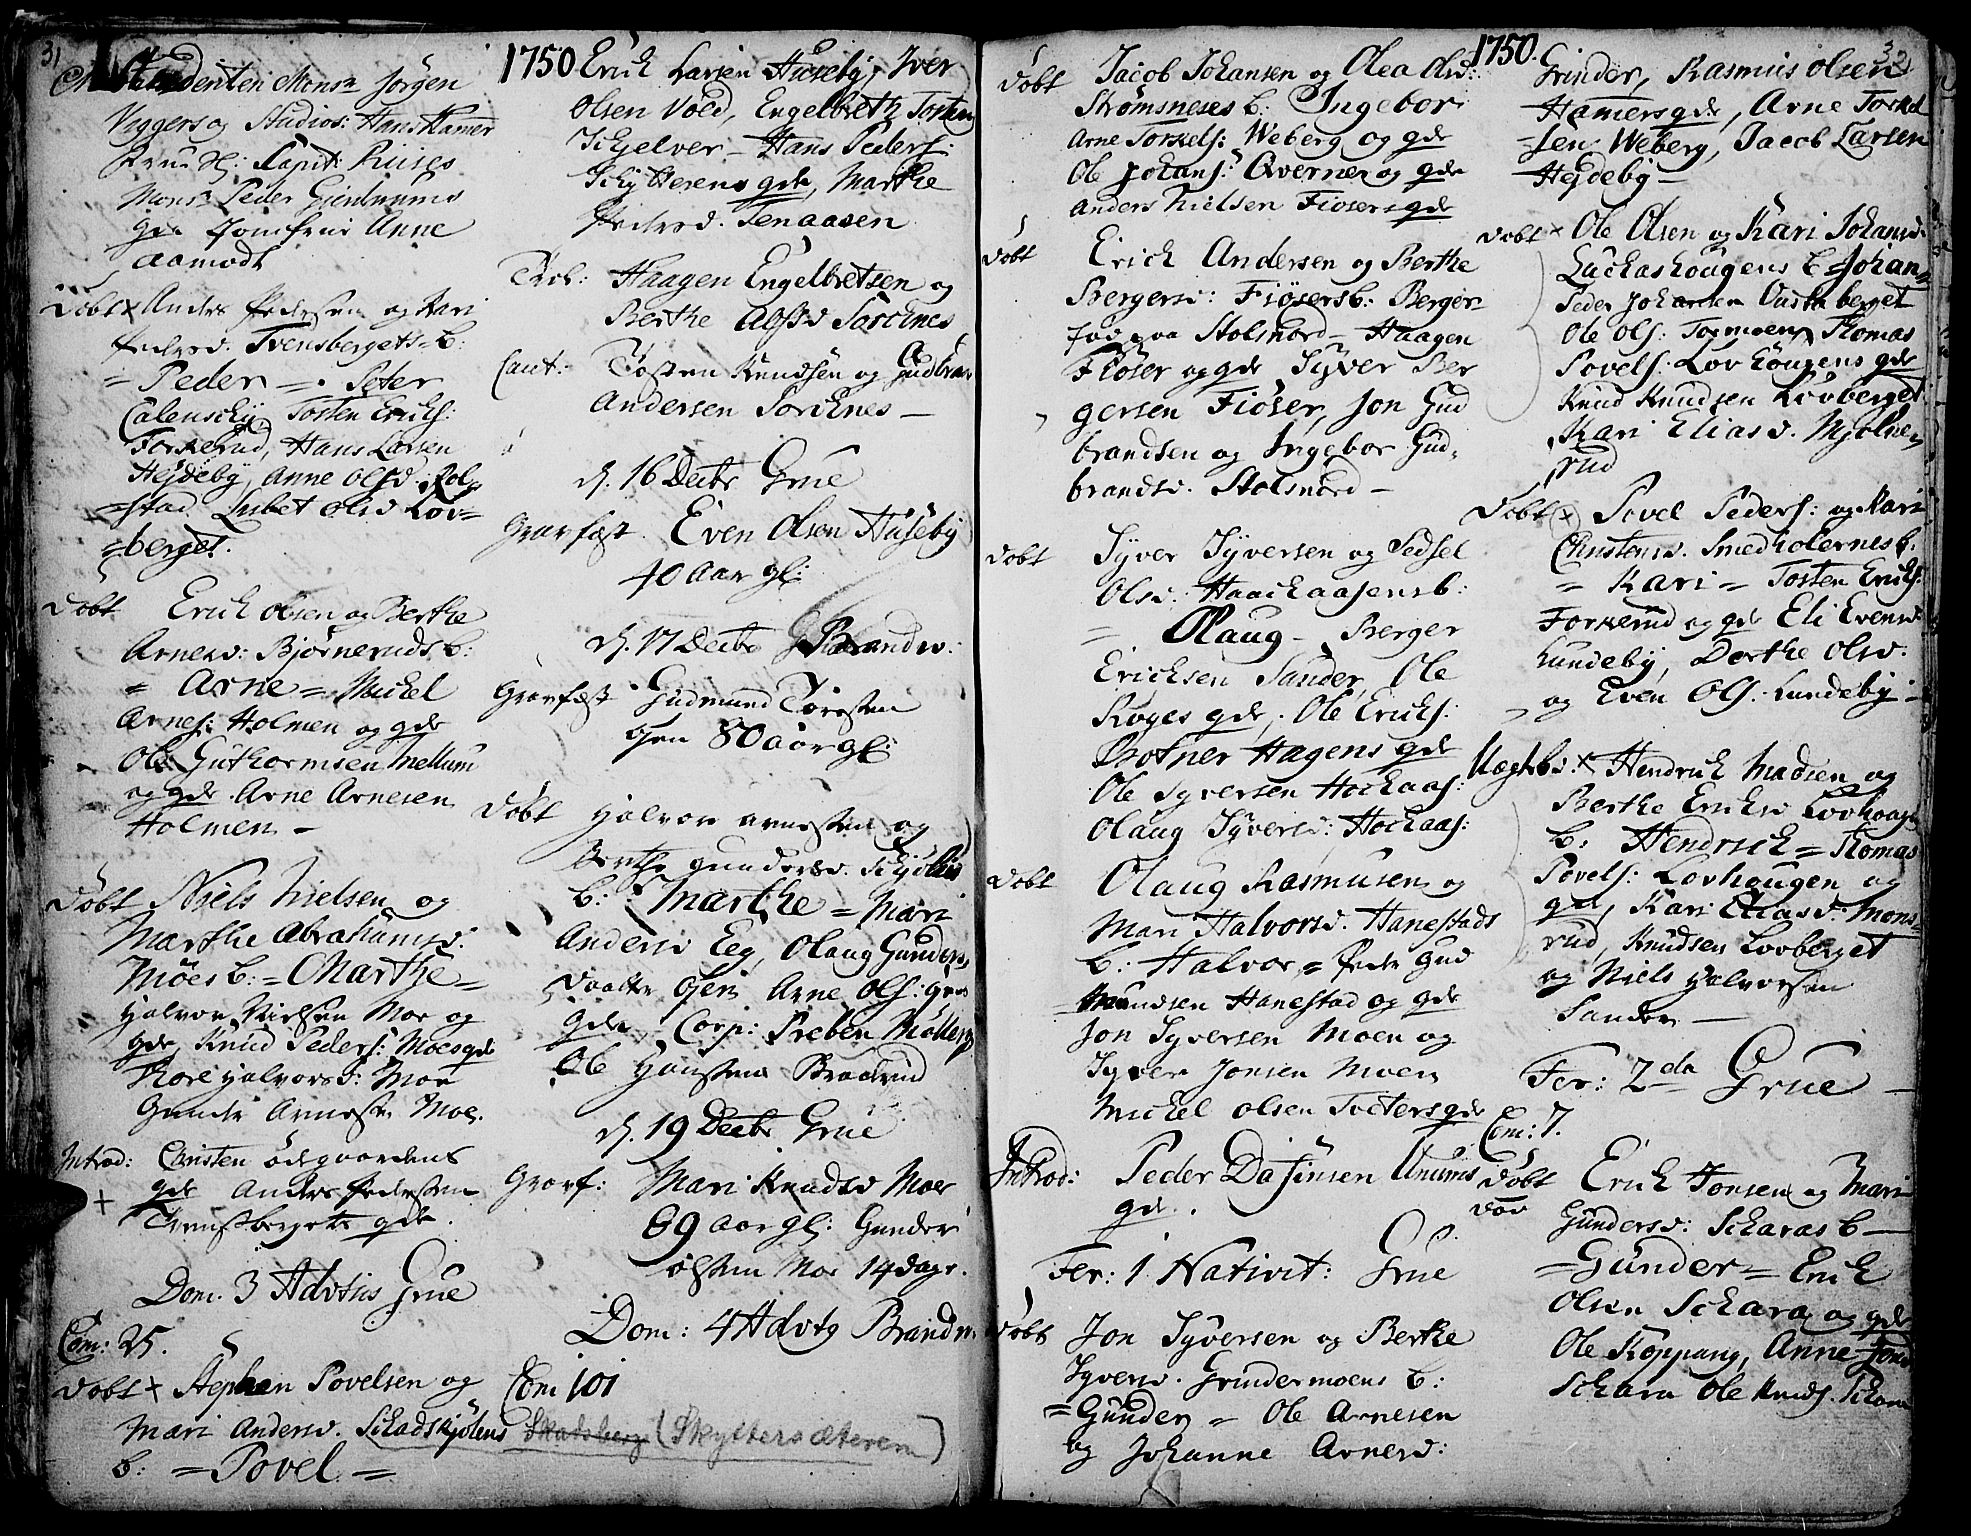 31
1750
Studenten Monsr Jørgen
Viggers og Studios: Hans Hamer
Frue Hl: Capit: Riises
Monsr Peder Gierdrums
gde Jomfrue Anne
Aamodt
Døbt × Anders Pedersen og Kari
Pedersd. Tvensbergets b:
= Peder = . Peter
Calensky, Tosten Ericks:
Torkerud, Hans Larsen
Hejdeby, Anne Olsd. Rol=
=stad Lisbet Olsd Lov=
=berget.
Døbt Erick Olsen og Berthe
Arnesd: Bjørneruds b:
= Arne = Michel
Arnes: Holmen og gde
Ole Guthormsen Mellum
og gde. Arne Arnesen
Holmen –
Døbt Niels Nielsen og
Marthe Abrahamsd.
Moes b: = Marthe =
Halvor Nielsen Moe og
gde, Knud Peders: Moes gde
Kari Halvorsd: Moe
Gunder Arnesen Moe.
Introd: Christen Ødegaardens
gde Anders Pedersen
+ Tvensbergets gde.
Dom. 3 Advtus Grue
Com: 25.
Døbt × Stephen Povelsen og
Mari Andersd. Schadskjølens
b: = Povel =
Erick Larsen Huseby, Iver
Olsen Vold, Engelbreth Tosten
Schjelver – Hans Peders:
Schytterens gde, Marthe
Pedersd. Tenaasen
Trol: Haagen Engelbretsen og
Berthe Alfsd Sorknes
Caut: Tosten Knudsen og Gudbran
Andersen Sorcknes –
d. 16 Decbr Grue
Grarfæst. Even Olsen Huseby
40 Aar gl:
d. 17 Decbr Brandw:
Grarfæst Gudmund Torosten
Open 80 aar gl:
Døbt Halvor Arnesen og
Berthe Gundersd. Schjølens
b: Marthe = Mari
Andersd Eeg, Olaug Gunders
Arne Ols:
gde Corp: Preben Møllers
Ole Hansen Braarud
d. 19 Decbr Grue
Grarf: Mari Knudsd Moe
89 aar gl: Gunder
Olsen Moe 14 dage.
Dom: 4 Advtg Brandw.
Com 101
Skadsberg (Skyttersæteren)
1750.
32
Døbt Jacob Johansen og Olea Olsd:
Strømsneses b: Ingebor
Arne Torkels: Weberg og gde
Ole Johans: Qverner og gde
Anders Nielsen Fiosers gde
Døbt Erick Andersen og Berthe
Bergersd: Fiøsers b: Berger
fød paa Stolsnord – Haagen
Fiøser og gde Syver Ber
gersen Fiøser, Jon Gud
brandsen og Ingebor Gud=
brandsd. Stolsnord –
Døbt Syver Syversen og Sidsel
Olsd. Haackaasens b:
= Olaug – Berger
Ericksen Sander, Ole
Roges gde, Ole Ericks:
Botner Hagens gde
Ole Syversen Hockaas:
Olaug Syversd: Hockaas:
Døbt Olaug Rasmusen og
Mari Halvorsd. Hanestads
b: Halvor = Peder Gud
mundsen Hanestad og gde
Jon Syversen Moen og
Syver Jonsen Moen
Michel Olsen Tveters gde
Introd: Peder Dafinsen Unums
gde.
Fer: 1 Nativit: Grue
Døbt Jon Syversen og Berthe
Syversd. Grindermoens b:
= Gunder = Ole Arnesen
og Johanne Arnesd:
Grinder, Rasmus Olsen
Hamers gde, Arne Torkel
sen Weberg, Jacob Larsen
Hejdeby –
Døbt × Ole Olsen og Kari Johansd.
Luckashougens b = Johan=
Peder Johansen Øusteberget
Ole Ols: Tormoen, Thomas
Povels: Lovhougens gde
Knud Knudsen Lovberget
Kari Eliasd. Mjolne=
rud
Døbt × Povel Peders: og Kari
Christensd. Smedholernes b.
= Kari = Tosten Ericks:
Torkerud og gde Eli Evensd
Lundeby, Dorthe Olsd.
og Even Ols: Lundeby –
Uægteb:d: × Hendrick Madsen og
Berthe Ericksd Lovhoug
b: Hendrich = Thomas
Povels: Lovhougen og
gde, Kari Eliasd: Mons
rud, Knudsen Lovberget
og Niels Halvorsen
Sander –
Fer: 2da Grue –
Com: 7.
Døbt Erick Jonsen og Mari
Gundersd: Scharas b –
= Gunder = Erick
Olsen Schara og gde
Ole Koppang, Anne Jonsd
Schara Ole Knuds. Schara